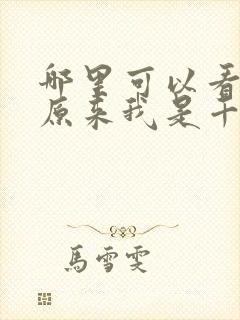 哪里可以看
原来我是十
馬雪雯